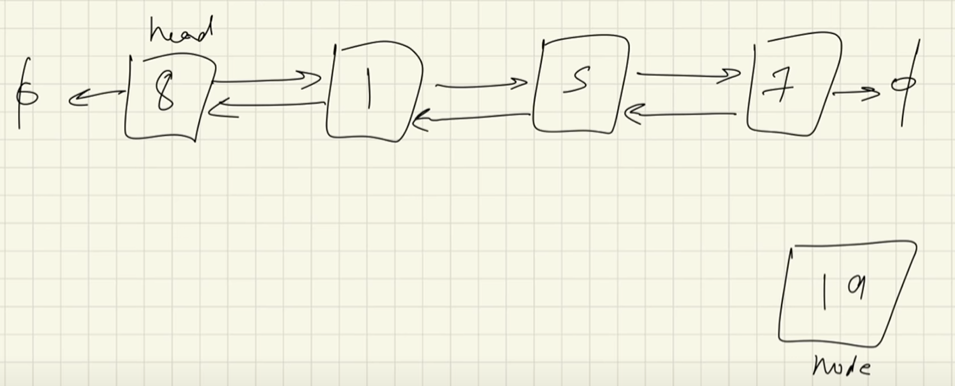 head
ϕ 8 1 5 7 ϕ
19
node